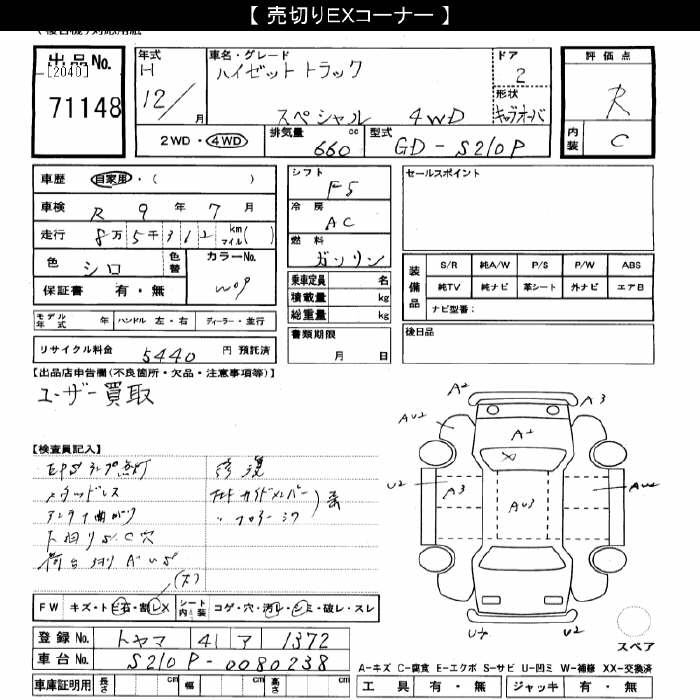 【 売切りEXコーナー 】
出品No.
[2040]
71148
年式
H
12/
月
車名・グレード
ハイゼットトラック
スペシャル 4WD
ドア
2
形状
キャブオーバ
評価点
R
内装
C
2WD・4WD
排気量
660
cc
型式
GD-S210P
車歴 自家用・( )
車検 R 9 年 7 月
走行 8万5千312 km マイル( )
色 シロ
色替
カラーNo.
W09
保証書 有・無
モデル年式 年 ハンドル 左・右 ディーラー・並行
リサイクル料金 5440 円 預託済
シフト
F5
冷房
AC
燃料
ガソリン
乗車定員 名
積載量 kg
総重量 kg
書類期限
月 日
セールスポイント
装備品
S/R 純A/W P/S P/W ABS
純TV 純ナビ 革シート 外ナビ エアB
ナビ型番:
後日品
【出品店申告欄(不良箇所・欠品・注意事項等)】
ユーザー買取
【検査員記入】
EPSランプ点灯
メッキドレス
アンテナ曲がり
下回りS、C穴
修復
(大)
FW キズ・トビ石・割レX シート内装 コゲ・穴・汚レ・シミ・破レ・スレ
登録No. トヤマ 41 ア 1372
車台No. S210P-0080238
車庫証明用 長さ cm 幅 cm 高さ cm
A2
A3
AU2
A2
X
U2
A3
AU3
AU2
U2
スペア
A-キズ C-腐食 E-エクボ S-サビ U-凹ミ W-補修 XX-交換済
工具 有・無 ジャッキ 有・無